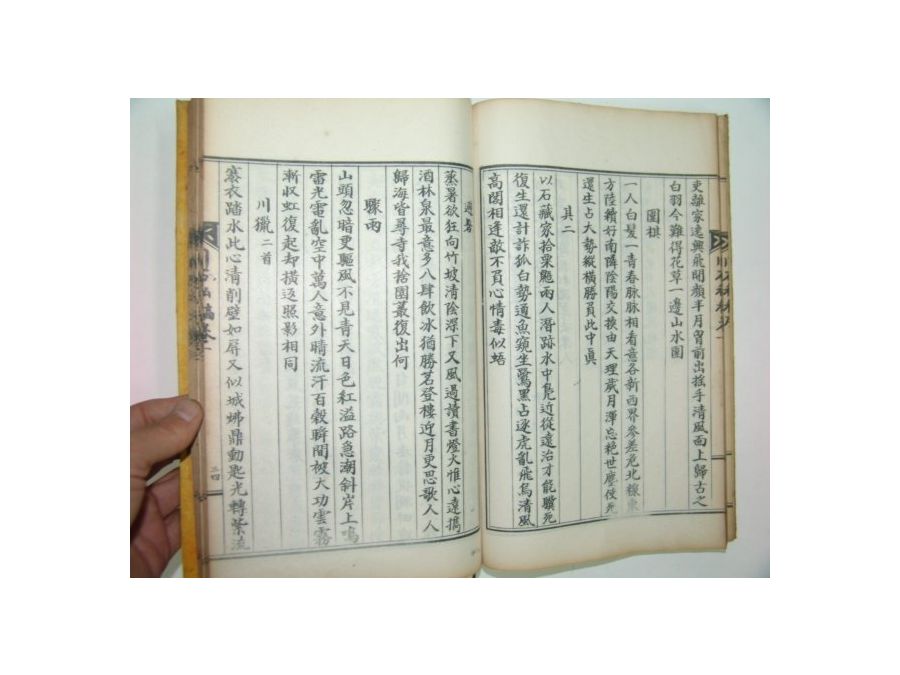 吏離家遠興飛開顔半月留前出搖手清風面上歸古之
白羽今難得花草一邊山水園
圍棋
一人白髮一青春脉脉相看意各新西界參差危北線東
方陸續好南隣陰陽交換由天理歲月渾忘絶世塵使死
還生占大勢縱横勝負此中眞
其二
以石藏家拾栗颺兩人潛跡水中凫近從遠治才能驥死
復生還計詐狐白勢通魚窺坐鷺黑占逐虎亂飛烏清風
高閣相逢敵不負心情毒似蜈
蒸暑欲狂向竹坡清陰深下又風過讀書燈火惟心遠携
酒林泉最意多八肆飲冰猶勝茗登樓近月更思歌人人
歸海皆尋寺我捨園叢復出何
驟雨
山頭忽暗更驅風不見青天日色紅溢路急潮斜岸上鳴
雷光電亂空中萬人意外晴流汗百穀瞬間被大功雲霧
漸収虹復起却橫返照影相同
川獵二首
褰衣踏水此心清削壁如屏又似城 鼎動匙光轉紫流
三四